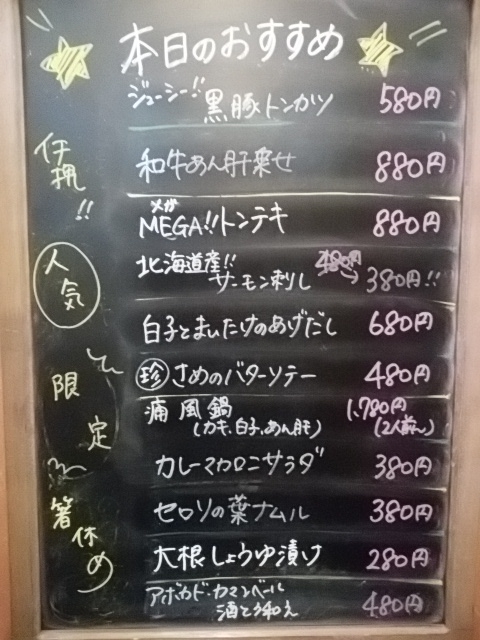 本日のおすすめ
ジューシー!! 黒豚トンカツ 580円
イチ押!!
和牛あん肝乗せ 880円
メガ
MEGA!!トンテキ 880円
人気
北海道産!! サーモン刺し 480円→380円!!
白子とまいたけのあげだし 680円
限定
珍 さめのバターソテー 480円
痛風鍋 (カキ、白子、あん肝) 1,780円 (2人前〜)
カレーマカロニサラダ 380円
箸休め
セロリの葉ナムル 380円
大根しょうゆ漬け 280円
アボカド・カマンベール 酒と和え 480円